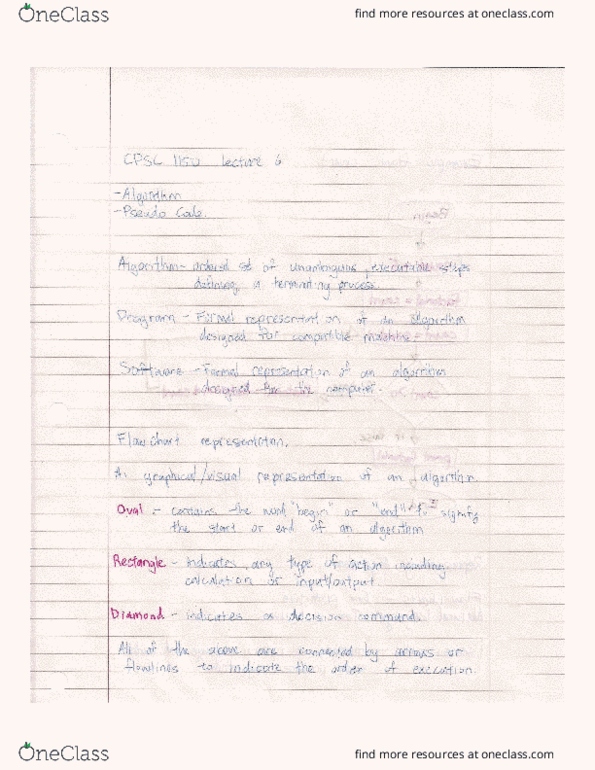 OneClass
find more resources at oneclass.com
CPSC 1150 lecture 6
-Algorithm
-Pseudo Code.
Algorithm - ordered set of unambiguous, executable steps
defining a terminating process.
Program - Formal representation of an algorithm
designed for compatible machine.
Software - Formal representation of an algorithm
designed for the computer.
Flowchart representation.
A graphical/visual representation of an algorithm.
Oval - contains the word "begin" or "end" to signify
the start or end of an algorithm
Rectangle - indicates any type of action including
calculation or input/output.
Diamond - indicates a decision command.
All of the above are connected by arrows or
flowlines to indicate the order of execution.
OneClass
find more resources at oneclass.com